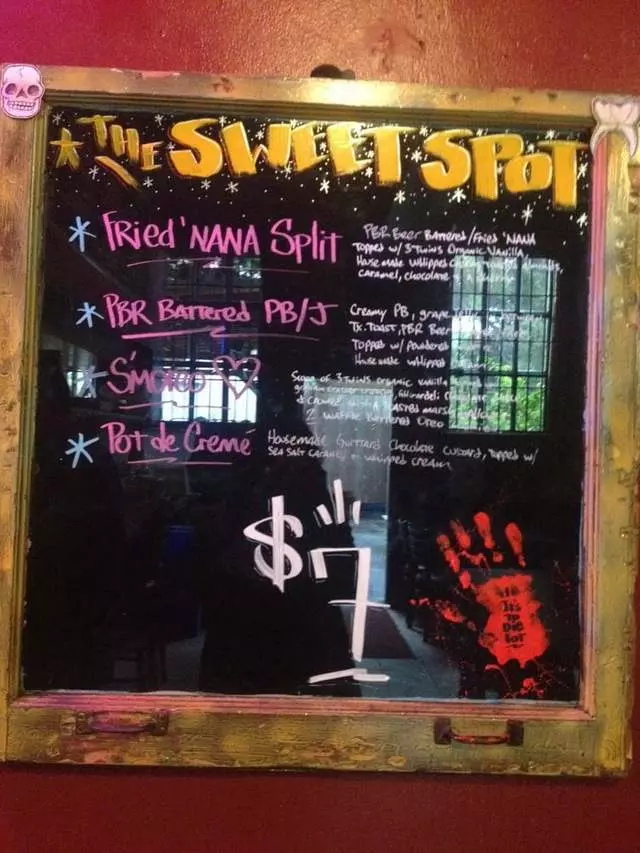 THE SWEET SPOT
Fried 'NANA Split
PBR Beer Battered/Fried 'NANA
Topped w/ 3 Twins Organic Vanilla,
House made whipped almonds,
caramel, chocolate
PBR Battered PB/J
Creamy PB, grape
Tx. Toast, PBR Beer
Topped w/ powdered
House made whipped cream
S'mores
Scoop of 3 Twins organic vanilla
graham cracker Ghirardeli chocolate
& crowned toasted marsh
2 waffle Battered Oreo
Pot de Cremé
Housemade Guittard Chocolate Custard, Topped w/
SEA SALT CARAMEL whipped cream
$7
It's
To
Die
for!